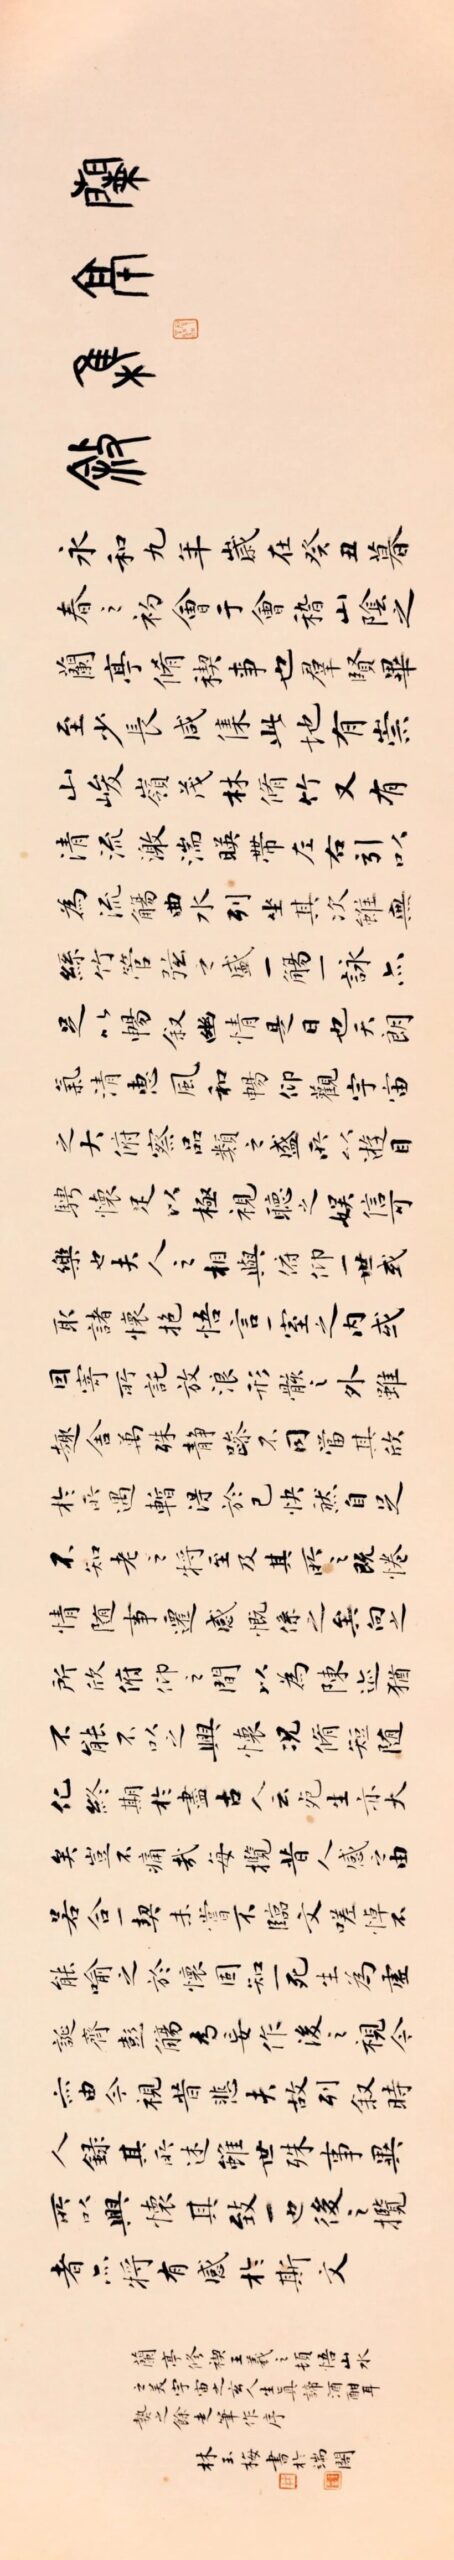 蘭亭集敘
永和九年歲在癸丑暮
春之初會于會稽山陰之
蘭亭脩禊事也羣賢畢
至少長咸集此地有崇
山峻嶺茂林脩竹又有
清流激湍暎帶左右引以
為流觴曲水列坐其次雖無
絲竹管弦之盛一觴一詠亦
足以暢叙幽情是日也天朗
氣清惠風和暢仰觀宇宙
之大俯察品類之盛所以遊目
騁懷足以極視聽之娛信可
樂也夫人之相與俯仰一世或
取諸懷抱悟言一室之內或
因寄所託放浪形骸之外雖
趣舍萬殊靜躁不同當其欣
於所遇暫得於己快然自足
不知老之將至及其所之既惓
情隨事遷感慨係之矣向之
所欣俯仰之間以為陳迹猶
不能不以之興懷況脩短隨
化終期於盡古人云死生亦大
矣豈不痛哉每攬昔人感之由
若合一契未嘗不臨文嗟悼不
能喻之於懷固知一死生為虛
誕齊彭觴為妄作後之視今
亦由今視昔悲夫故列叙時
人錄其所述雖世殊事異
所以興懷其致一也後之攬
者亦將有感於斯文
蘭亭修禊王羲之頓悟山水
之美宇宙之玄人生真諦酒酣耳
熱之餘走筆作序
林玉梅書於瑞閣